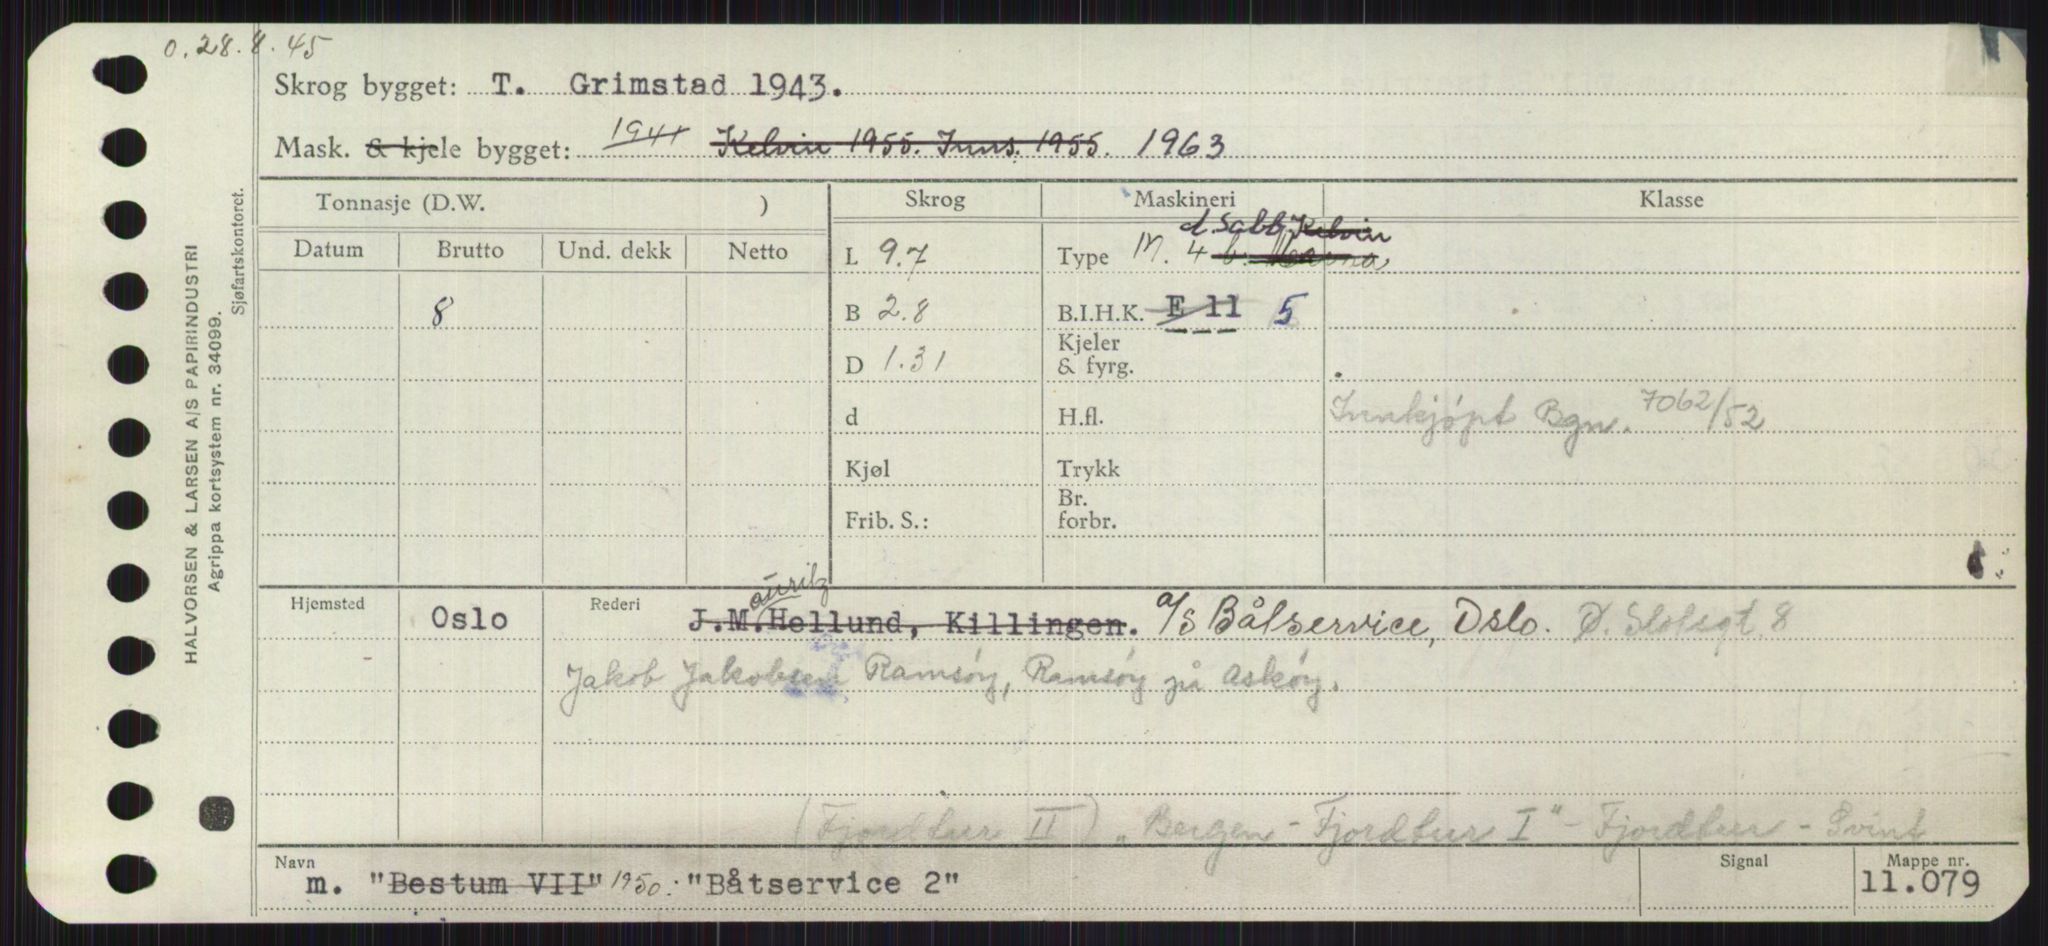 0. 28. 8. 45
Skrog bygget: T. Grimstad 1943.
Mask. & kjele bygget: 1941 Kelvin 1955. Inns. 1955. 1963
Tonnasje (D.W. )
Skrog
Maskineri
Klasse
Datum
Brutto
Und. dekk
Netto
8
L 9.7
B 2.8
D 1.31
d
Kjøl
Frib. S.:
d. Sabb Kelvin
Type M. 4
B.I.H.K. E 11 5
Kjeler
& fyrg.
H.fl.
Trykk
Br.
forbr.
Innkjøpt Bgn. 7062/52
Hjemsted
Oslo
Rederi
ouritz
J.M. Hellund, Killingen. a/s Båtservice, Oslo. Ø. Slotsgt. 8
Jakob Jakobsen Ramsøy, Ramsøy på Askøy.
(Fjordtur II) "Bergen - Fjordtur I" - Fjordtur - Svint
Navn
m. "Bestum VII" 1950. "Båtservice 2"
Signal
Mappe nr.
11.079
HALVORSEN & LARSEN A/S PAPIRINDUSTRI
Agrippa kortsystem nr. 34099.
Sjøfartskontoret.